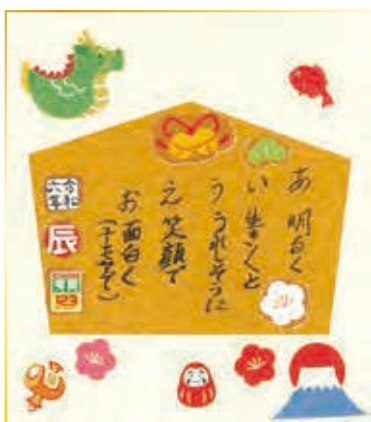 あ 明るく
い 生き〱と
う うれしそうに
え 笑顔で
お 面白く
令和
六年
辰
123